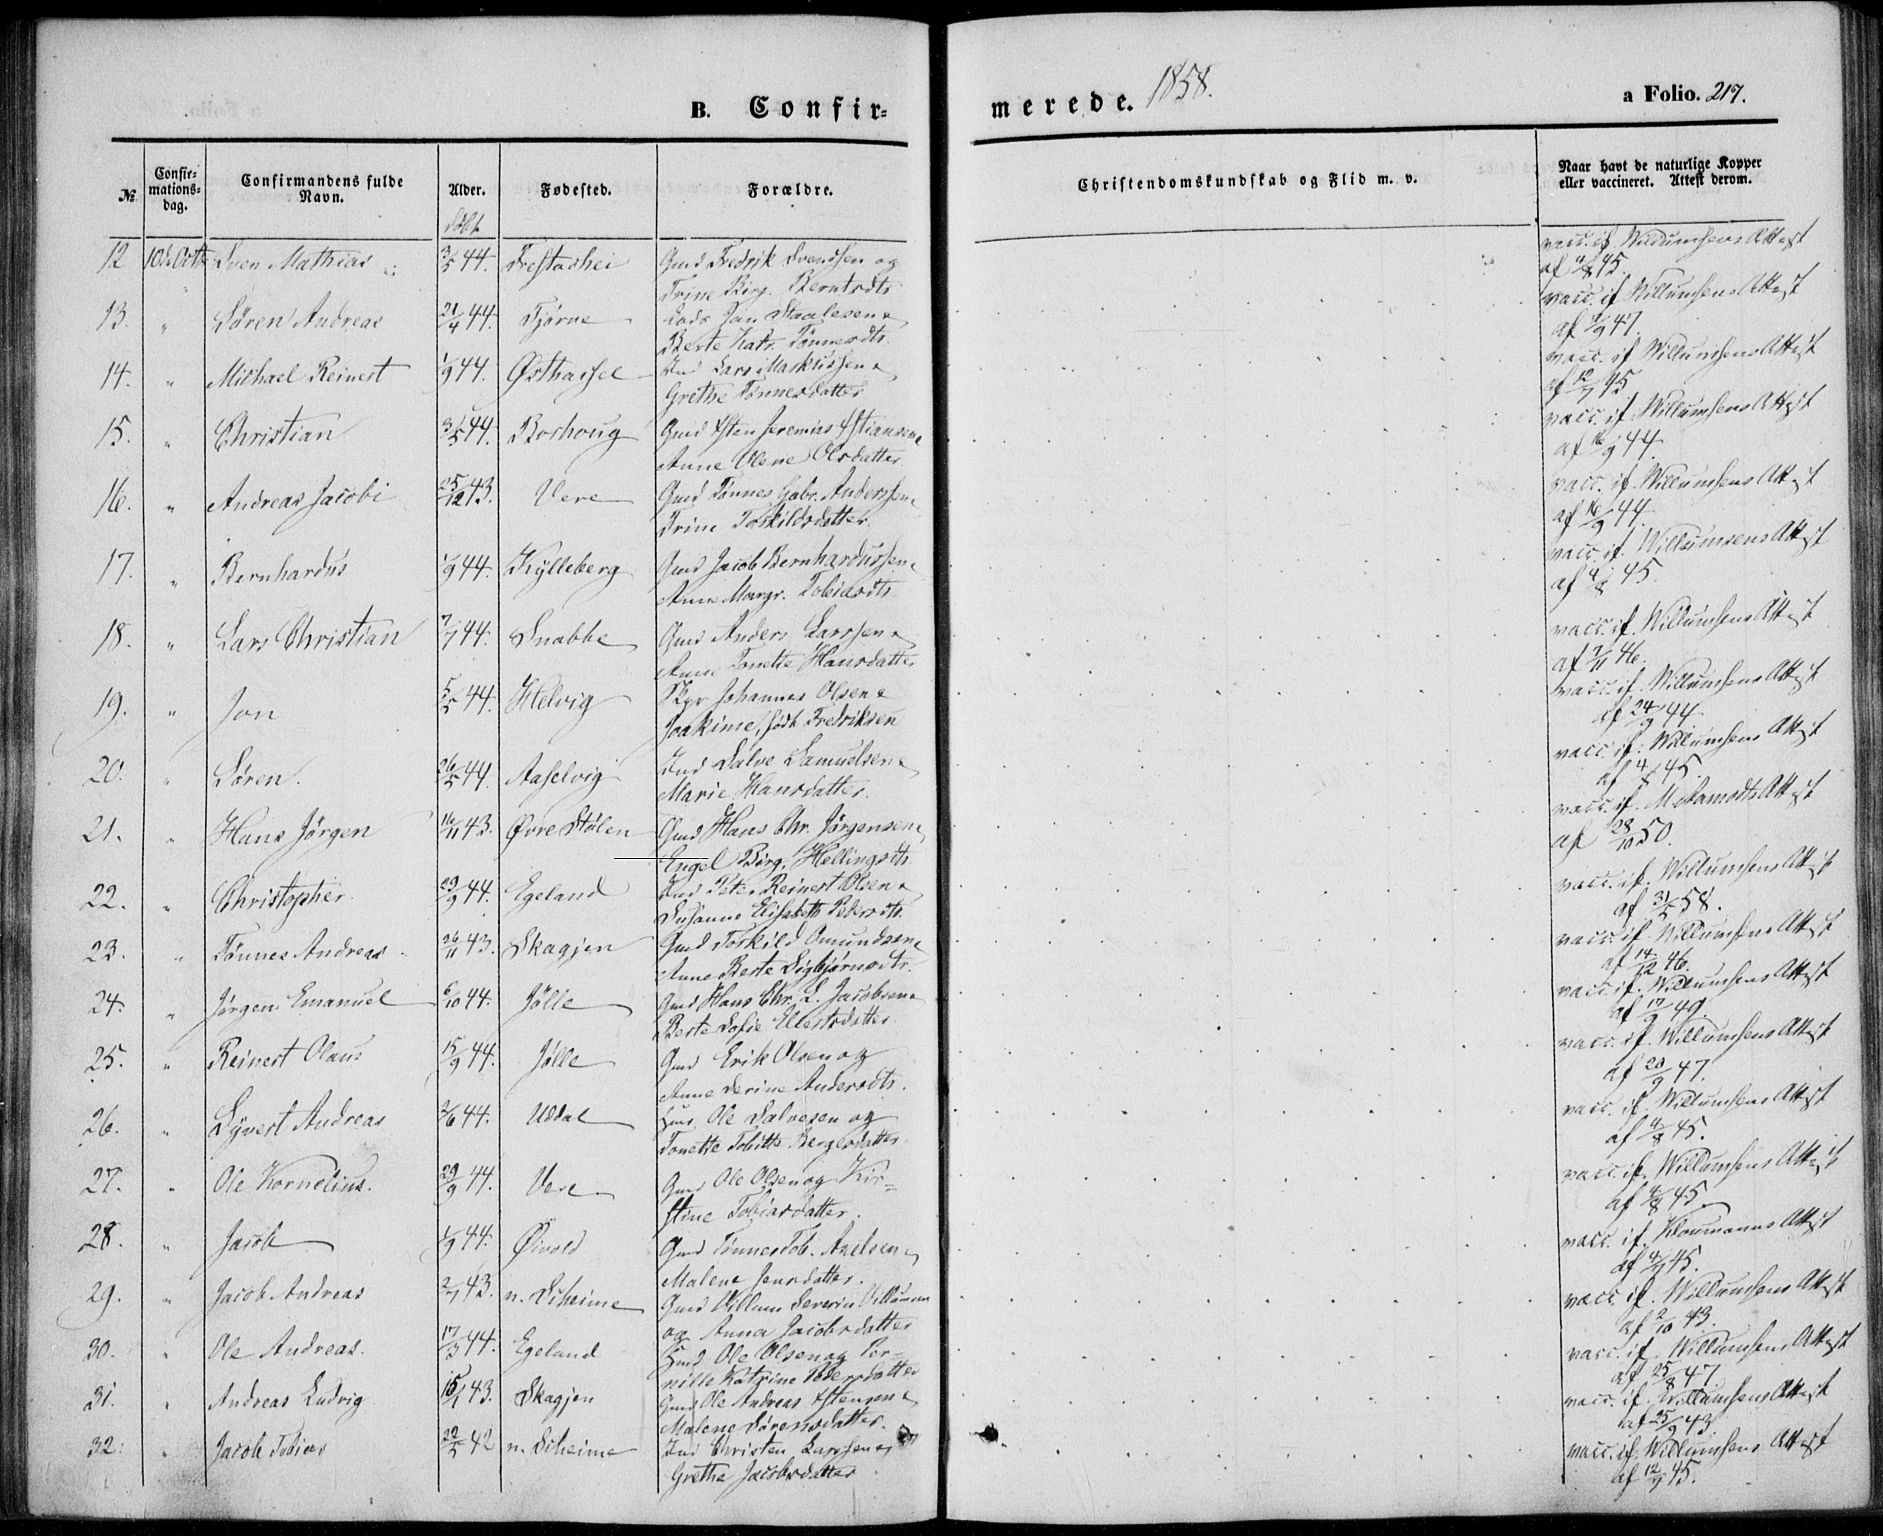 B. Confir-
merede. 1858.
a Folio. 217.
№
Confir-
mations-
dag.
Confirmandens fulde
Navn.
Alder.
Fødested.
Forældre.
Christendomskundskab og Flid m. v.
Naar havt de naturlige Kopper
eller vaccineret. Attest derom.
døbt
12 10de Octbr Sven Mathias 3/5 44. Frestadhei Gmd Fredrik Svendsen og vacc. if. Willumsens Attest
Trine Birg. Berntsdtr. af 4/8 45.
13. " Søren Andreas 21/4 44. Tjørve Lods Jan Staalesen & vacc. if. Willumsens Attest
Berte Katr. Tønnesdtr. af 47.
14. " Michael Reinert 1/9 44. Østhassel Ind Lars Markussen & vacc. if. Willumsens Attest
Grethe Tønnesdatter af 12/7 45
15. " Christian 44. Borhoug Gmd Østen Jeremias Østensen & vacc. if. Willumsens Attest
Anne Olene Olsdatter af 16/9 44.
16. " Andreas Jacobi 25/12 43. Vere Gmd Tønnes Gabr. Anderssen & vacc. if. Willumsens Attest
Trine Torkildsdatter. af 16/9 44.
17. " Bernhardus 1/9 44. Kylleberg Gmd Jacob Bernhardussen & vacc. if. Willumsens Attest
Anne Margr. Tobiasdtr. af 4/8 45.
18. " Lars Christian 7/7 44. Snabbe Gmd Anders Larssen & vacc. if. Willumsens Attest
Anne Tonette Hansdatter af 7/11 46.
19. " Jon 5/5 44. Helvig Johannes Olsen & vacc. if. Willumsens Attest
Joakime, født Fredriksen af 24/9 44
20. " Søren. 26/5 44. Aaselvig Ind Salve Samuelsen & vacc. if. Willumsens Attest
Marie Hansdatter. af 4/8 45
21. " Hans Jørgen 16/11 43. Øvre Stølen Gmd Hans Chr. Jørgensen & vacc. if. Attest
Engel Birg. Hellingsdtr. af 28/10 50.
22. " Christopher. 29/9 44. Egeland Ind Peter Reinert Olsen & vacc. if. Willumsens Attest
Susanne Elisabeth Pedersdtr. af 31/5 58.
23. " Tønnes Andreas 26/11 43. Skagjen Gmd Torkild Omundsen & vacc. if. Willumsens Attest
Anne Berte Sigbjørnsdtr. af 14/12 46.
24. " Jørgen Emanuel 6/10 44. Jølle Gmd Hans Chr. L. Jacobsen & vacc. if. Willumsens Attest
Berte Sofie Ellertsdatter. af 17/9 49.
25. " Reinert Olaus 15/9 44. Jølle Gmd Erik Olsen og vacc. if. Willumsens Attest
Anne Serine Andersdtr. af 20/9 47.
26. " Syvert Andreas 2/6 44. Uddal Ole Salvesen og vacc. if. Willumsens Attest
Tonette Tobitte Bergesdatter. af 4/8 45.
27. " Ole Kornelius. 29/9 44. Vere Gmd Ole Olsen og Kir- vacc. if. Willumsens Attest
stine Tobiasdatter. af 4/8 45.
28. " Jacob 1/9 44. Øivold Gmd Tønnes Tob. Axelsen & vacc. if. Attest
Malene Jensdatter. af 45.
29. " Jacob Andreas 2/7 43. n. Skeime Gmd Villum Severin Villumsen vacc. if. Willumsens Attest
og Anna Jacobsdatter af 2/10 43.
30. " Ole Andreas. 17/3 44. Egeland Ole Olsen og Per- vacc. if. Willumsens Attest
nille Katrine Pedersdatter af 25/8 47.
31. " Andreas Ludvig 43. Skagjen Gmd Ole Andreas Østensen & vacc. if. Willumsens Attest
Malene Sørensdatter. af 25/9 43
32. " Jacob Tobias 22/5 42 n. Skeime Ind Christen Larssen & vacc. if. Willumsens Attest
Grethe Jacobsdatter. af 12/7 45.